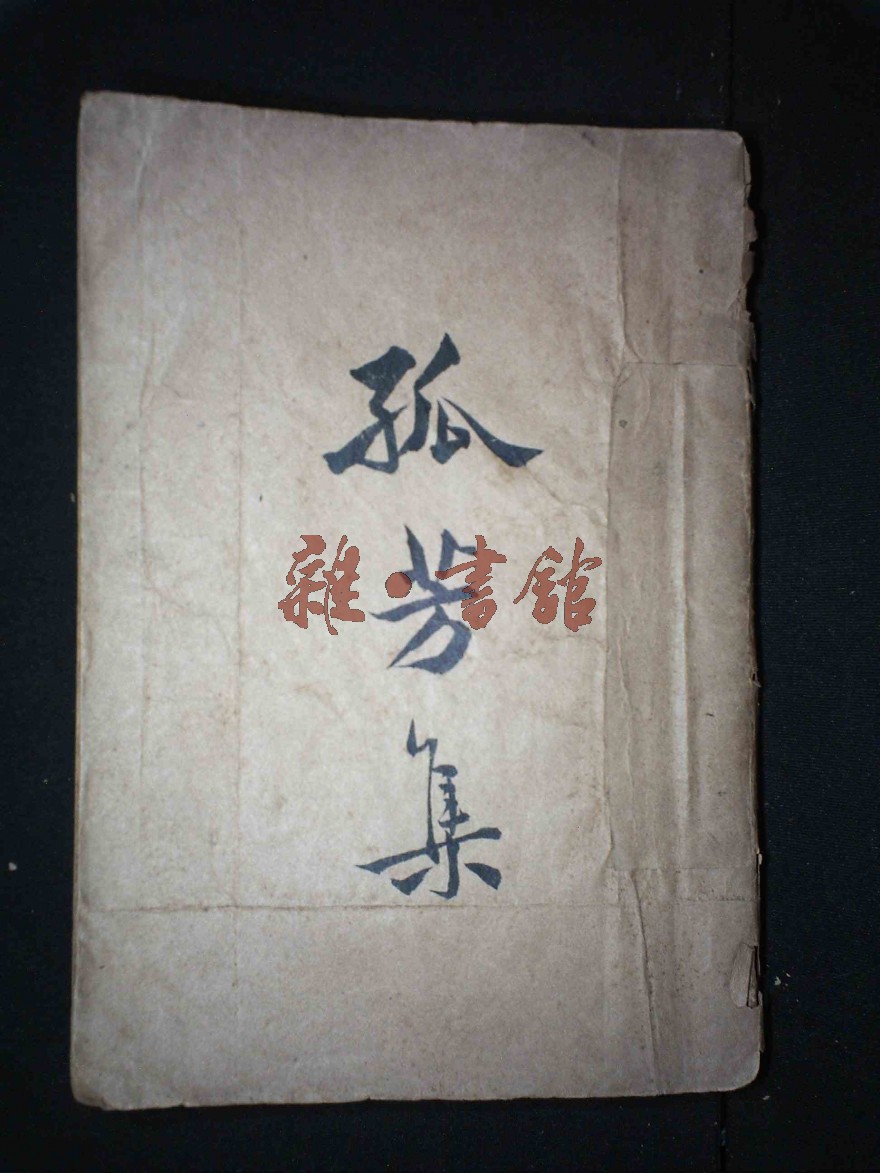 孤芳集
雜·書館